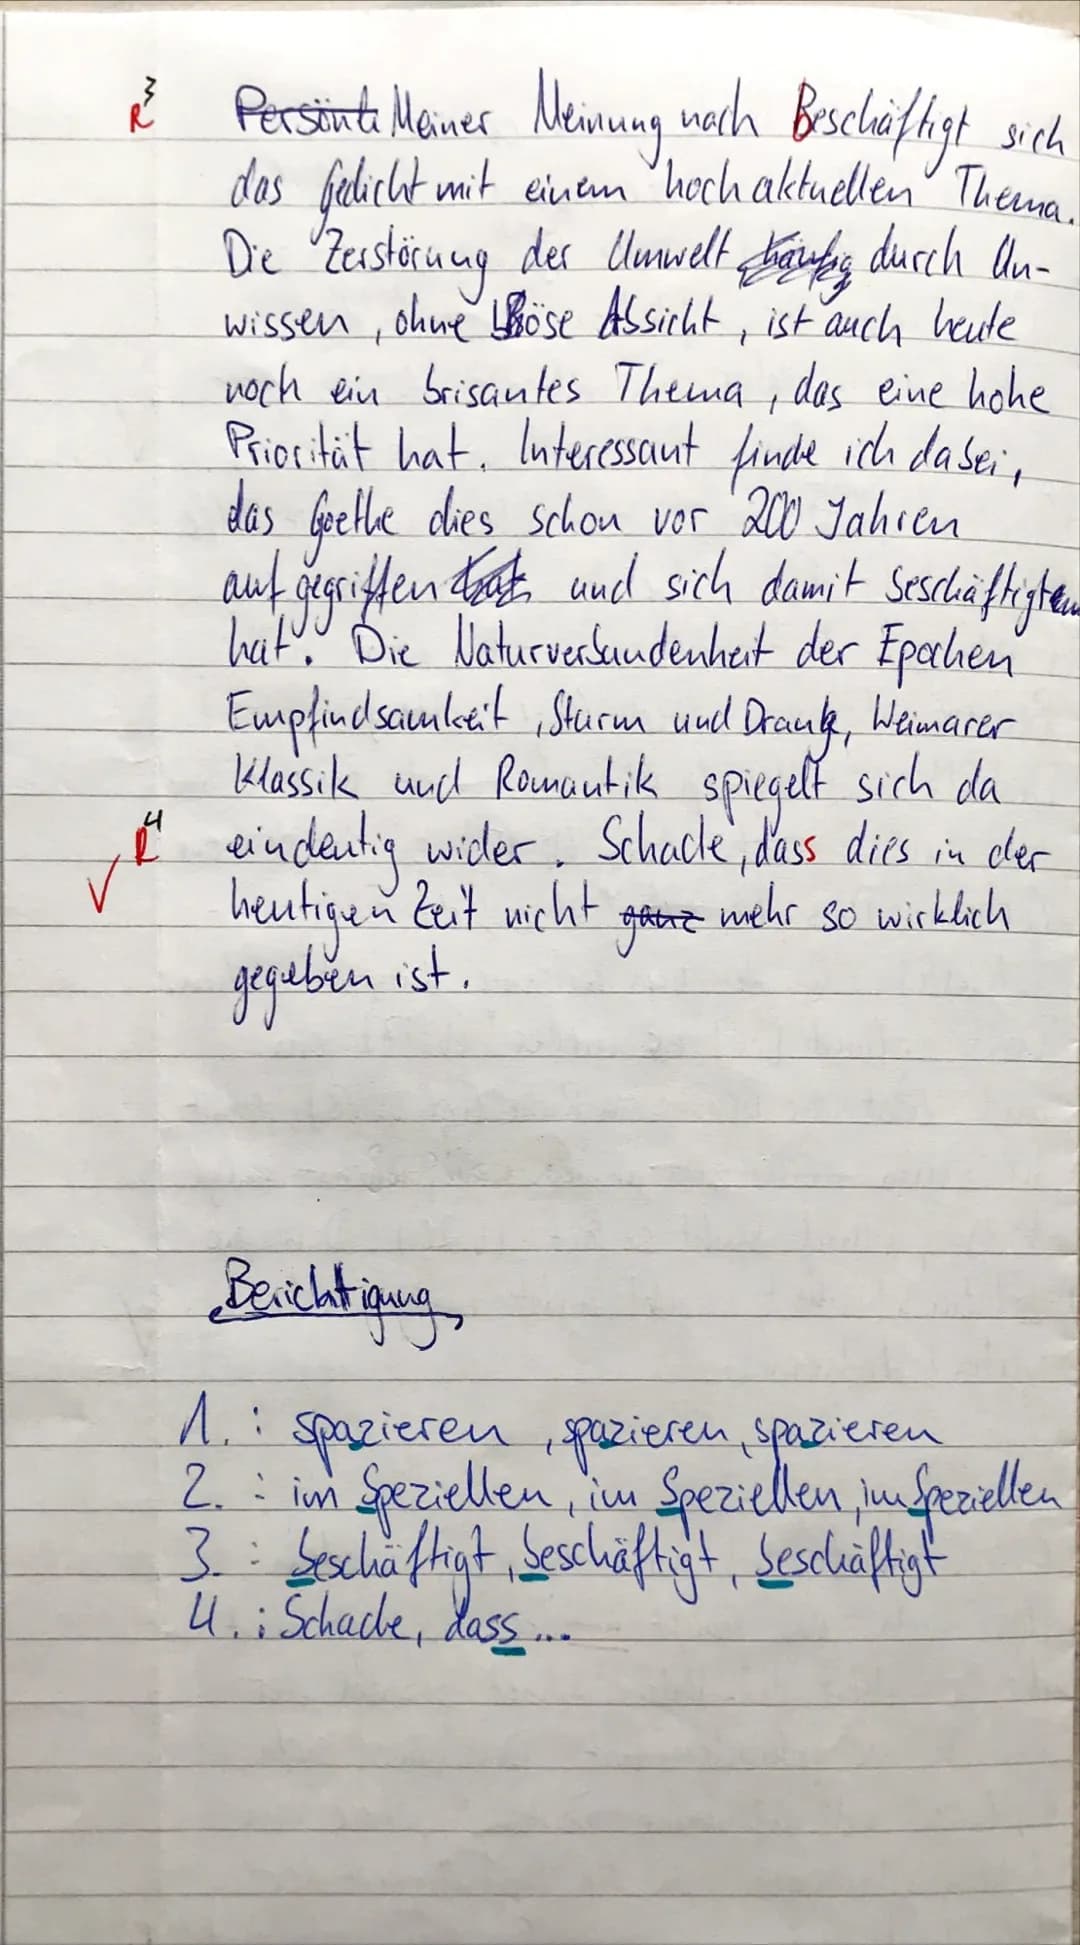 R³ Persönli Meiner Meinung nach Beschäftigt sich
das Gedicht mit einem hochaktuellen Thema.
Die Zerstörung der Umwelt häufig durch Un-
wissen, ohne Böse Absicht, ist auch heute
noch ein brisantes Thema, das eine hohe
Priorität hat. Interessant finde ich dabei,
das Goethe dies schon vor 200 Jahren
aufgegriffen hat und sich damit beschäftigt
hat. Die Naturverbundenheit der Epochen
Empfindsamkeit, Sturm und Drang, Weimarer
Klassik und Romantik spiegelt sich da
R⁴ eindeutig wider. Schade, dass dies in der
✓ heutigen Zeit nicht ganz mehr so wirklich
gegeben ist.
Berichtigung
1. : spazieren, spazieren, spazieren
2. : im Speziellen, im Speziellen, im Speziellen
3. : beschäftigt, beschäftigt, beschäftigt
4. : Schade, dass...